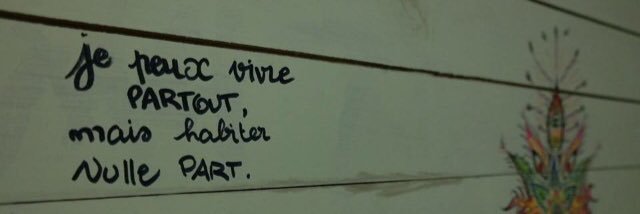 je peux vivre
PARTOUT,
mais habiter
Nulle PART.